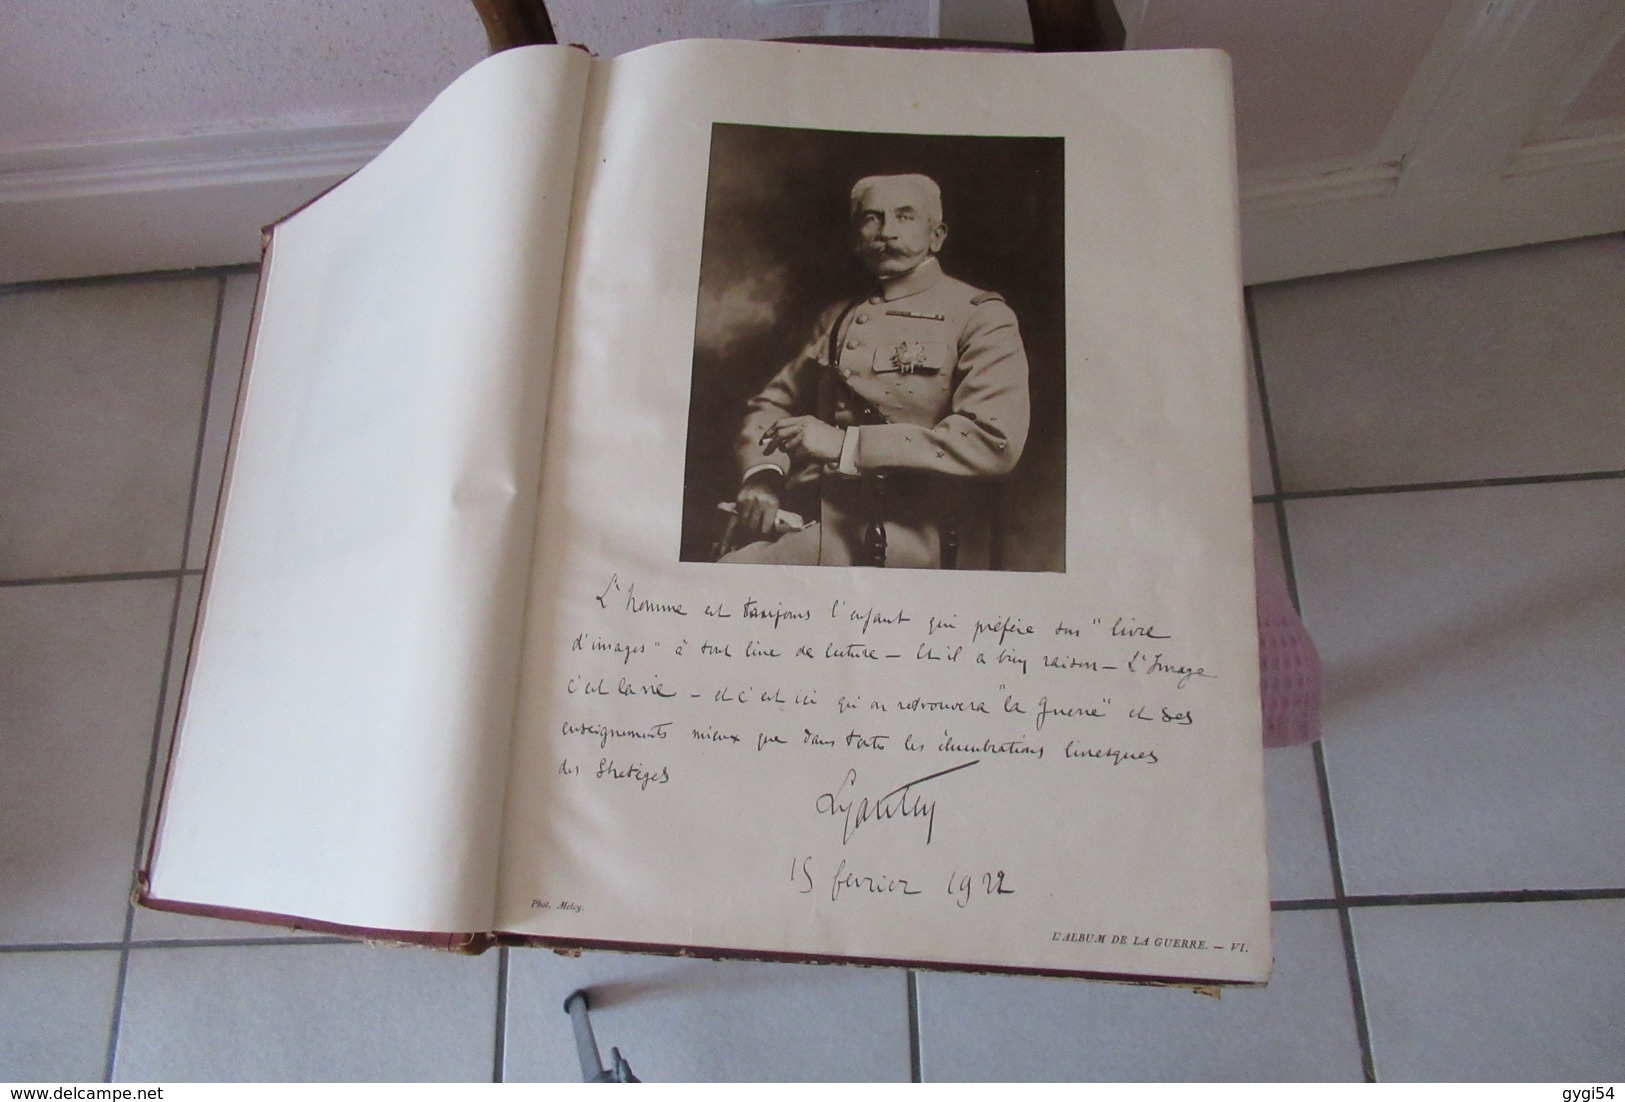 L'homme est toujours l'enfant qui préfère son "livre
d'images" à tout livre de lecture — Et il a bien raison — L'Image
c'est la vie — et c'est ici qu'on retrouvera "la Guerre" et ses
enseignements mieux que dans toutes les élucubrations livresques
des Stratèges
Lyautey
15 février 1922
Phot. Melcy.
L'ALBUM DE LA GUERRE. — VI.
www.delcampe.net
gygi54